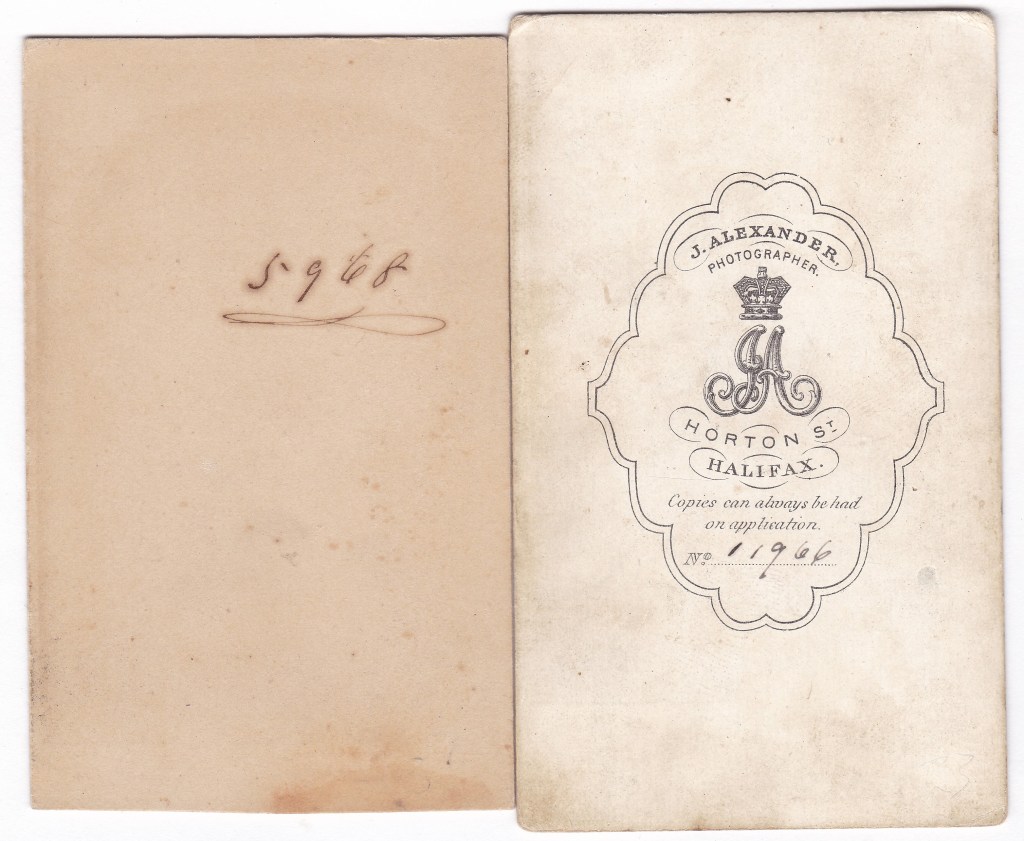 5968
J. ALEXANDER,
PHOTOGRAPHER.
JA
HORTON ST
HALIFAX.
Copies can always be had
on application.
No. 11966